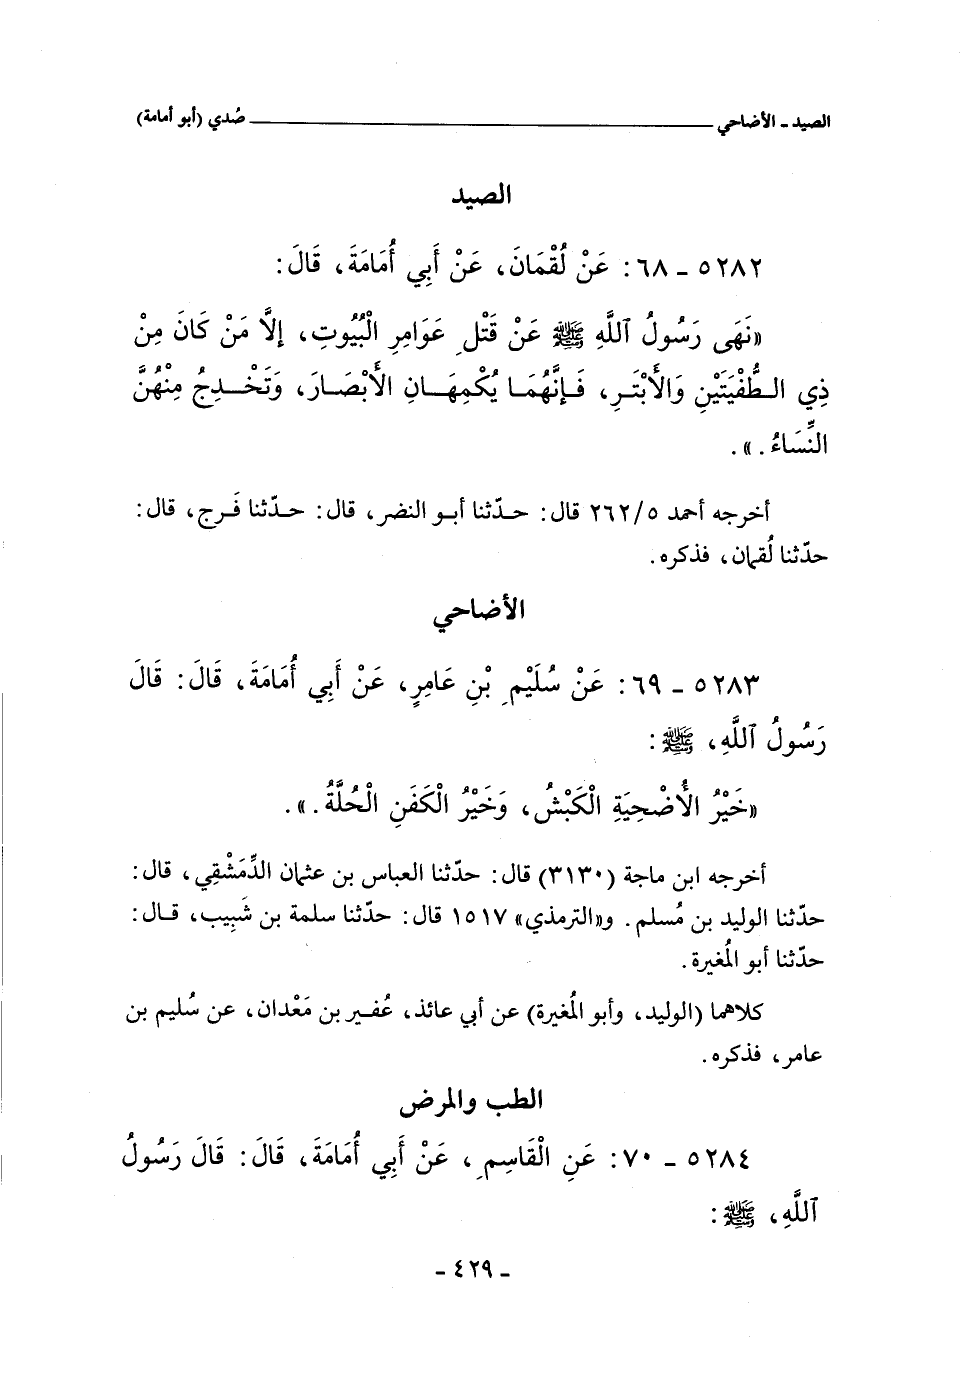 الصيد ـ الأضاحي ــــــــــ صُدي (أبو أمامة)
الصيد
٥٢٨٢ ـ ٦٨: عَنْ لُقْمَانَ، عَنْ أَبِي أُمَامَةَ، قَالَ:
«نَهَى رَسُولُ ٱللَّهِ ﷺ عَنْ قَتْلِ عَوَامِرِ الْبُيُوتِ، إلَّا مَنْ كَانَ مِنْ
ذِي الطُّفْيَتَيْنِ وَالأَبْتَرِ، فَإنَّهُمَا يُكْمِهَانِ الأَبْصَارَ، وَتَخْدِجُ مِنْهُنَّ
النِّسَاءُ.».
أخرجه أحمد ٢٦٢/٥ قال: حدّثنا أبو النضر، قال: حدّثنا فَرج، قال:
حدّثنا لُقمان، فذكره.
الأضاحي
٥٢٨٣ ـ ٦٩: عَنْ سُلَيْمِ بْنِ عَامِرٍ، عَنْ أَبِي أُمَامَةَ، قَالَ: قَالَ
رَسُولُ ٱللَّهِ، ﷺ:
«خَيْرُ الأُضْحِيَةِ الْكَبْشُ، وَخَيْرُ الْكَفَنِ الْحُلَّةُ.».
أخرجه ابن ماجة (٣١٣٠) قال: حدّثنا العباس بن عثمان الدِّمَشْقِي، قال:
حدّثنا الوليد بن مُسلم. و«الترمذي» ١٥١٧ قال: حدّثنا سلمة بن شَبِيب، قال:
حدّثنا أبو المُغيرة.
كلاهما (الوليد، وأبو المُغيرة) عن أبي عائذ، عُفير بن مَعْدان، عن سُليم بن
عامر، فذكره.
الطب والمرض
٥٢٨٤ ـ ٧٠: عَنِ الْقَاسِمِ، عَنْ أَبِي أُمَامَةَ، قَالَ: قَالَ رَسُولُ
ٱللَّهِ، ﷺ:
ـ ٤٢٩ ـ